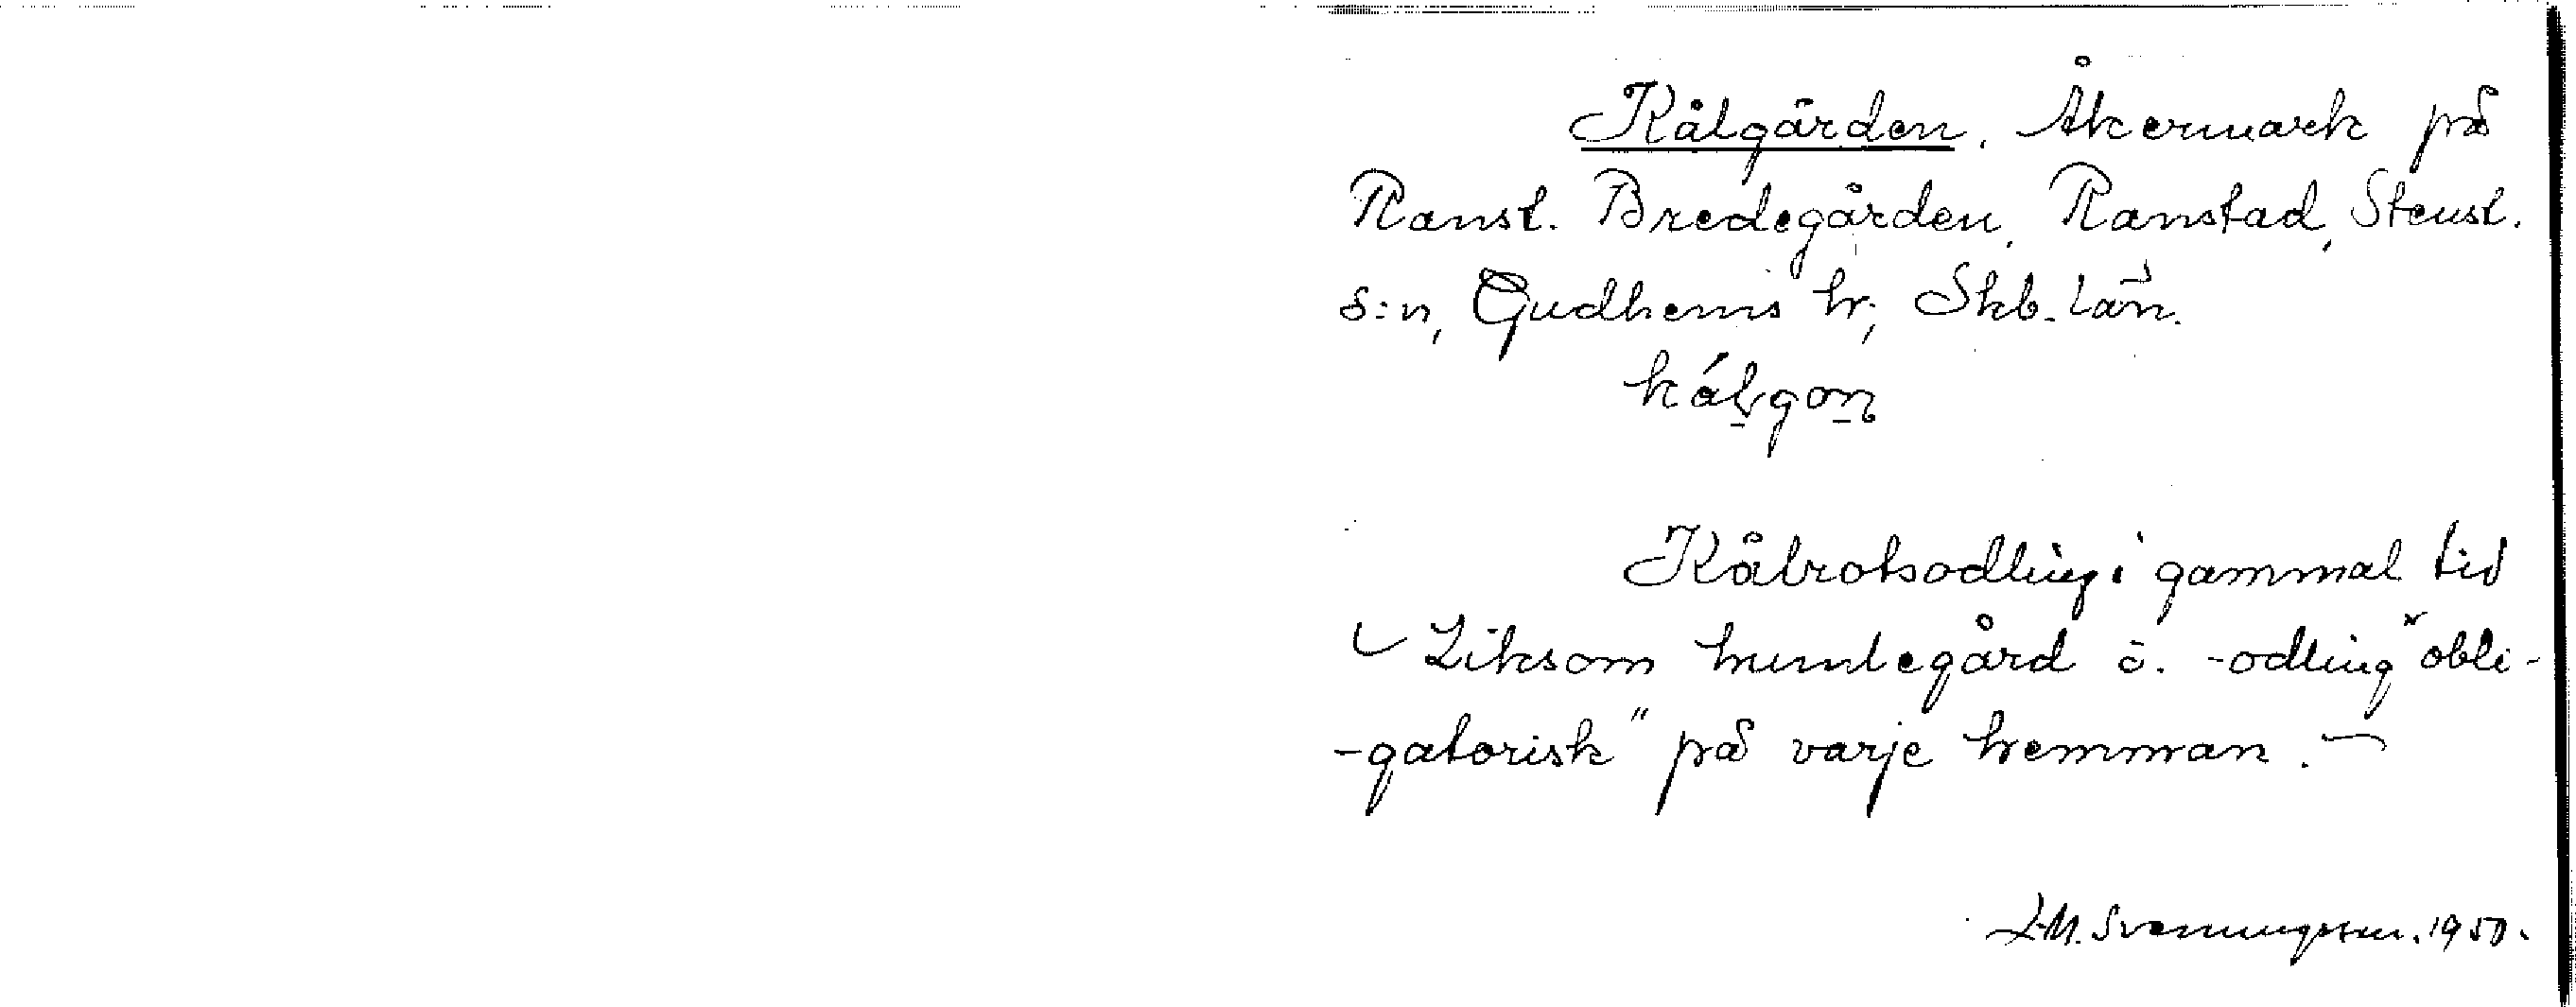 Kålgården. Åkermark på
Ranst. Bredegården, Ranstad, Stenst.
s:n, Gudhems hr, Skb. län.
kálgon
Kålrotsodling i gammal tid
Liksom humlegård o. -odling "obli-
-gatorisk" på varje hemman.
L.M. Svenningsson. 1950.